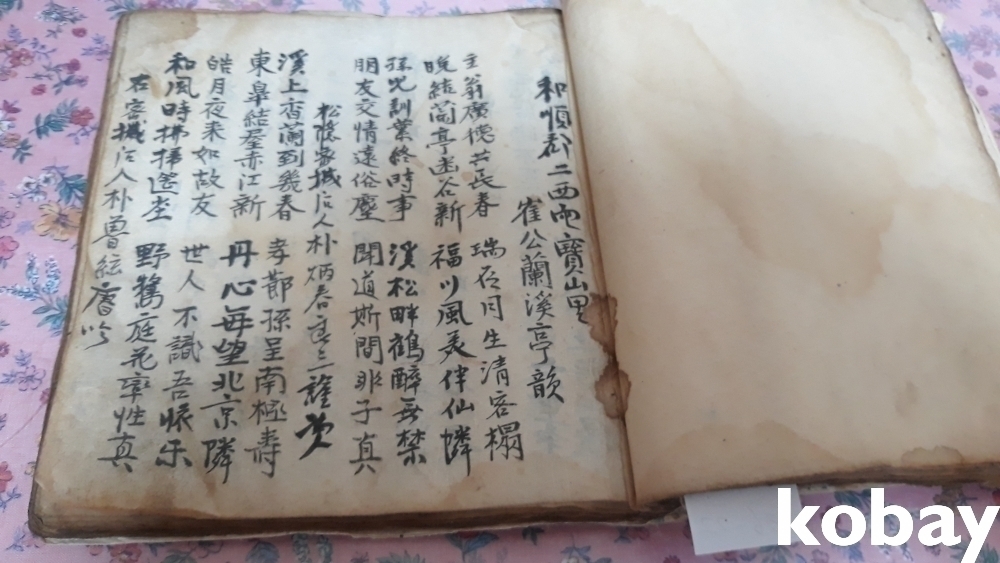 和順郡二西面寶山里
崔公蘭溪亭韻
主翁廣德共長春 瑞石月生清客榻
晩結蘭亭幽谷新 福川風美伴仙隣
孫児訓業終時事 溪松畔鶴醉無禁
朋友交情遠俗塵 聞道斯間子真
松隱客城后人朴炳春三謹
溪上香蘭到幾春 孝孫呈南極壽
東皐結屋赤江新 丹心每望北京隣
皓月夜来如故友 世人不識吾懐乐
和風時拂掃 野鶯庭花率性真
在客城后人朴魯紜吟
kobay